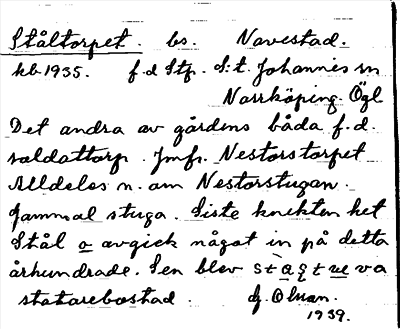 Ståltorpet bs. Navestad.
kb 1935. f.d Stp. S:t Johannes sn
Norrköping. Ögl
Det andra av gårdens båda f.d.
soldattorp. Jmfr. Nestorstorpet
Alldeles n. om Nestorstugan.
Gammal stuga. Siste knekten het
Stål o avgick något in på detta
århundrade. Sen blev va
statarebostad.
1939.